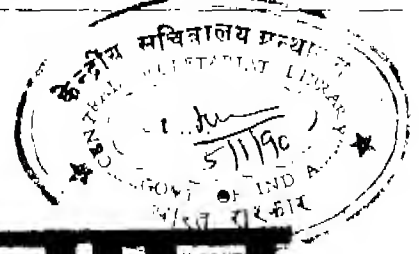 केन्द्रीय सचिवालय ग्रन्था
CENTRAL SECRETARIAT LIBRARY
5/1/90
GOVT OF INDIA
भारत सरकार